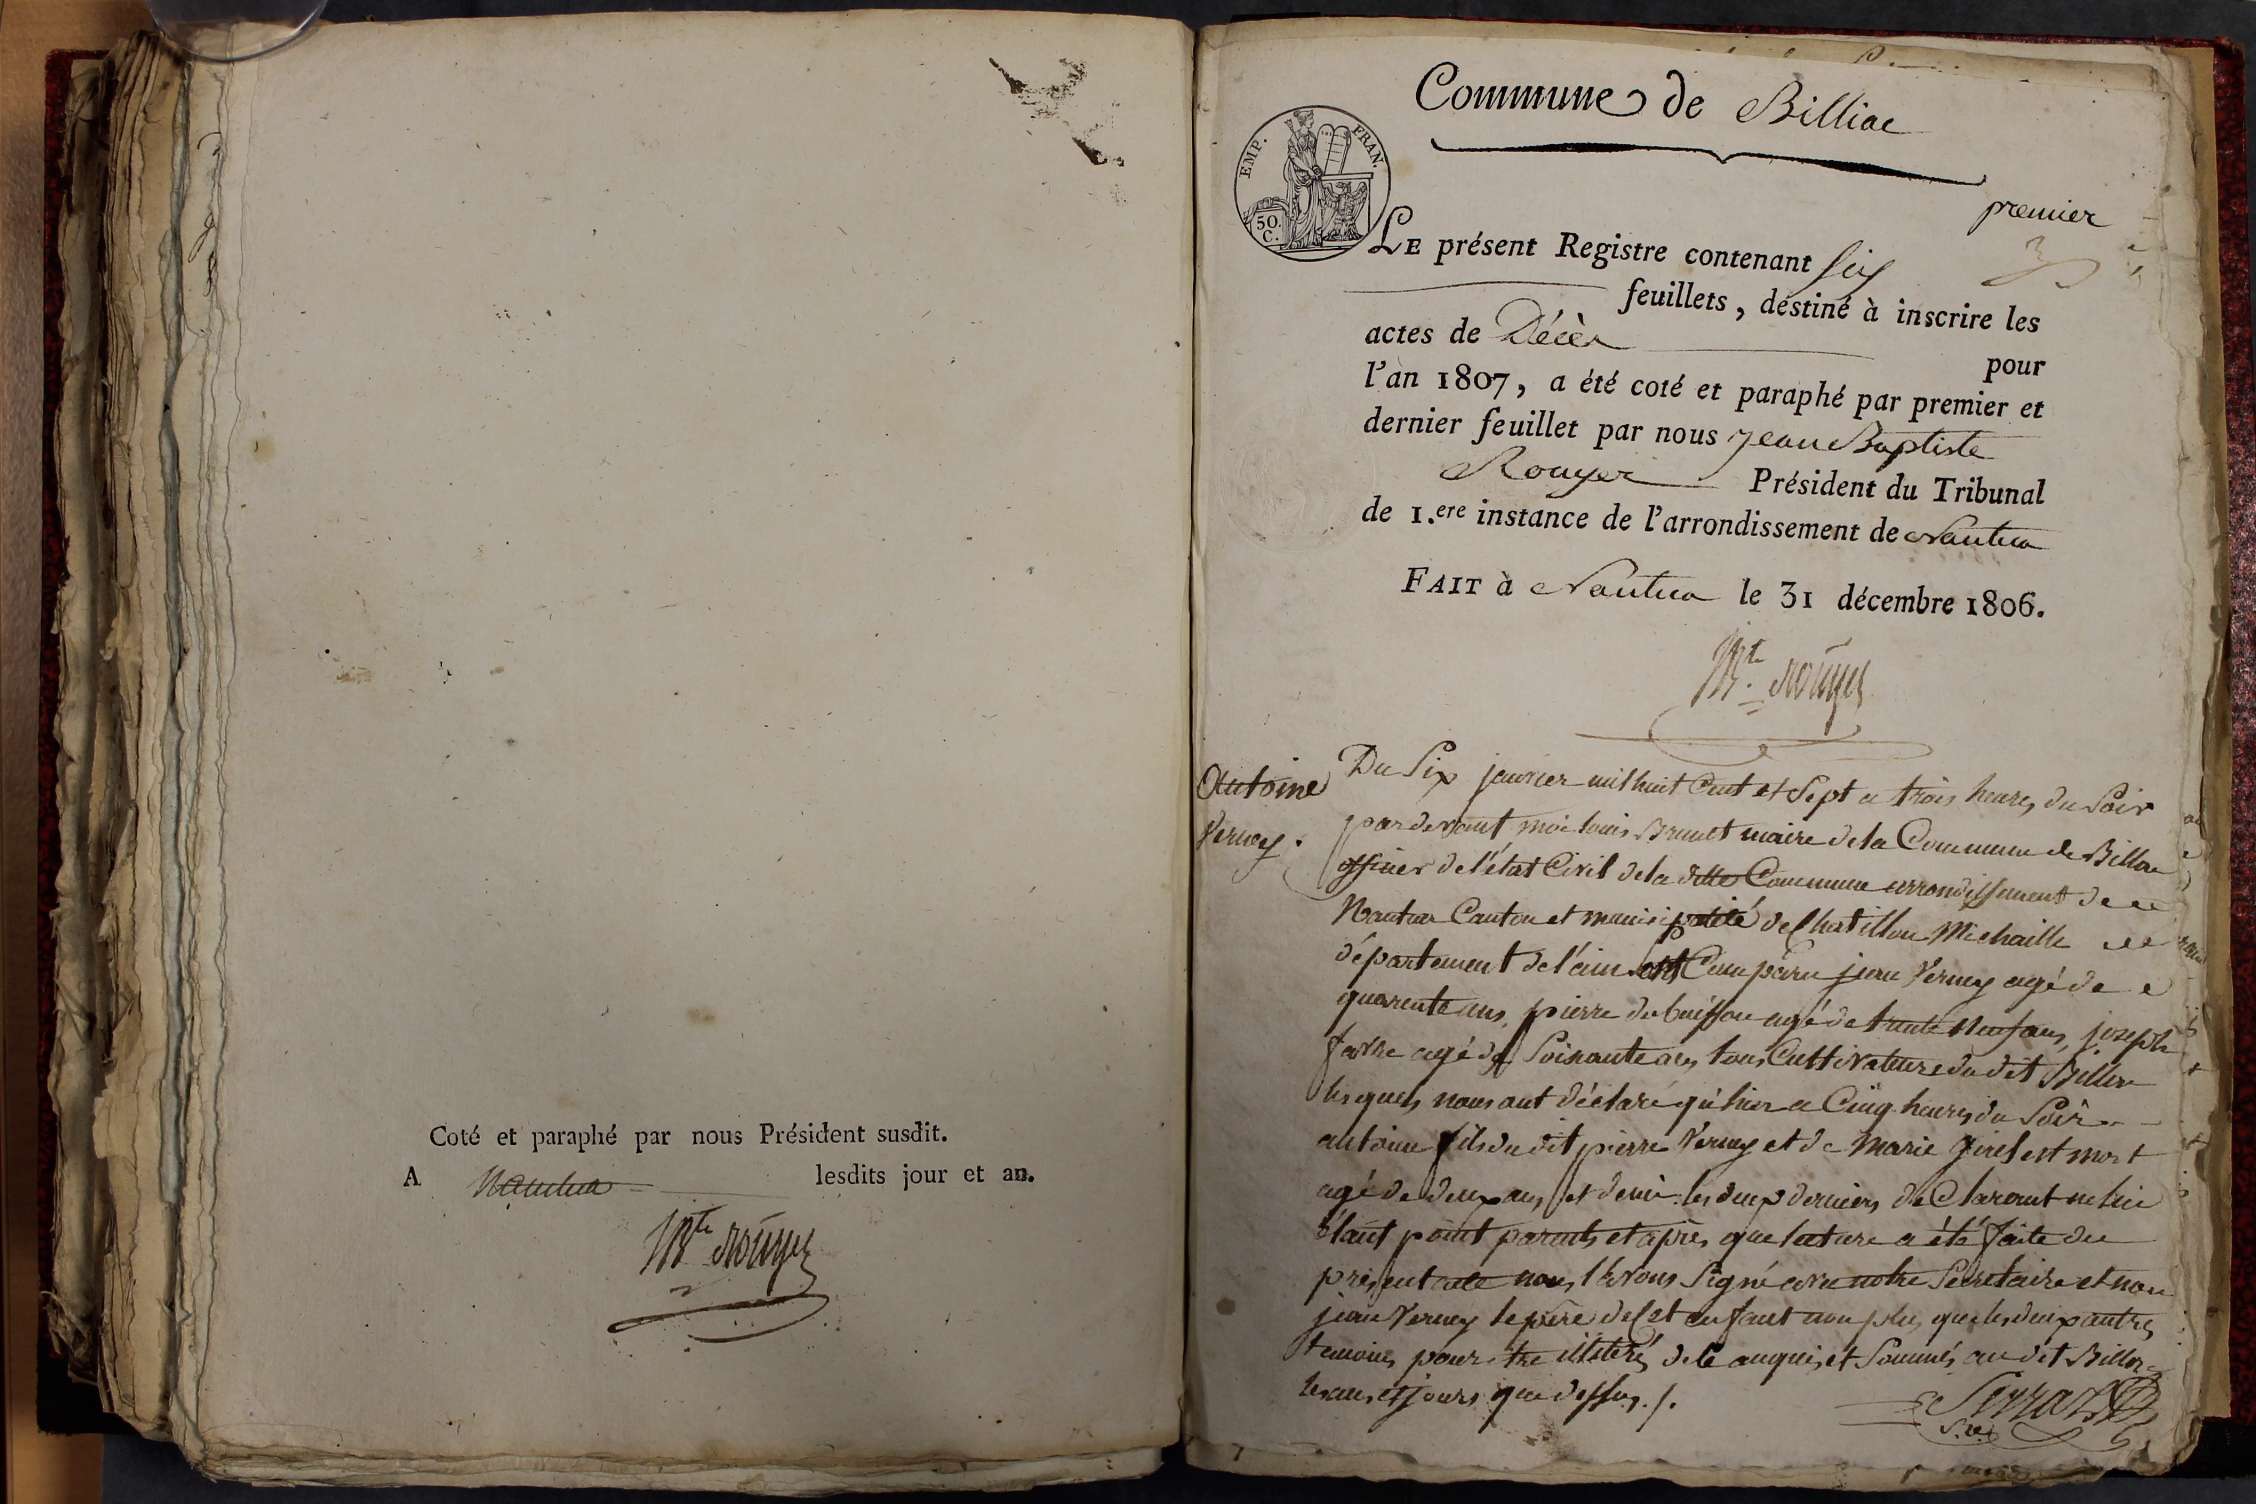 Coté et paraphé par nous Président susdit.
A Nantua lesdits jour et an.
Bte Rouyer
Commune de Billiac
EMP. FRAN.
50.
C.
premier
LE présent Registre contenant Six
feuillets, destiné à inscrire les
actes de Décès pour
l'an 1807, a été coté et paraphé par premier et
dernier feuillet par nous Jean Baptiste
Rouyer Président du Tribunal
de 1.ere instance de l'arrondissement de Nantua
FAIT à Nantua le 31 décembre 1806.
Bte Rouyer
Antoine
Verney.
Du Six janvier mil huit Cent et Sept a trois heures du Soir
pardevant moi louis Brunet maire de la Commune de Billia
officier de l'état Civil de la ditte Commune arrondissement de
Nantua Canton et municipalité de Chatillon Michaille
département de l'ain sont Comparu jean Verney agé de
quarente ans, pierre du buisson agé de trente neuf ans, joseph
favre agé de Soixante ans tous Cultivateurs du dit Billia
lesquels nous ont déclaré qu'hier a Cinq heures du Soir
antoine fils du dit pierre Verney et de Marie est mort
agé de deux ans et demi les deux derniers déClarant ne lui
étant point parents et après que lecture a été faite du
présent acte nous l'avons Signé avec notre Secretaire et non
jean Verney le père de Cet enfant non plus que les deux autres
temoins pour etre illiterés de Ce anquis et Sommés au dit Billia
les ans et jours que dessus ./.
Serra
S.re